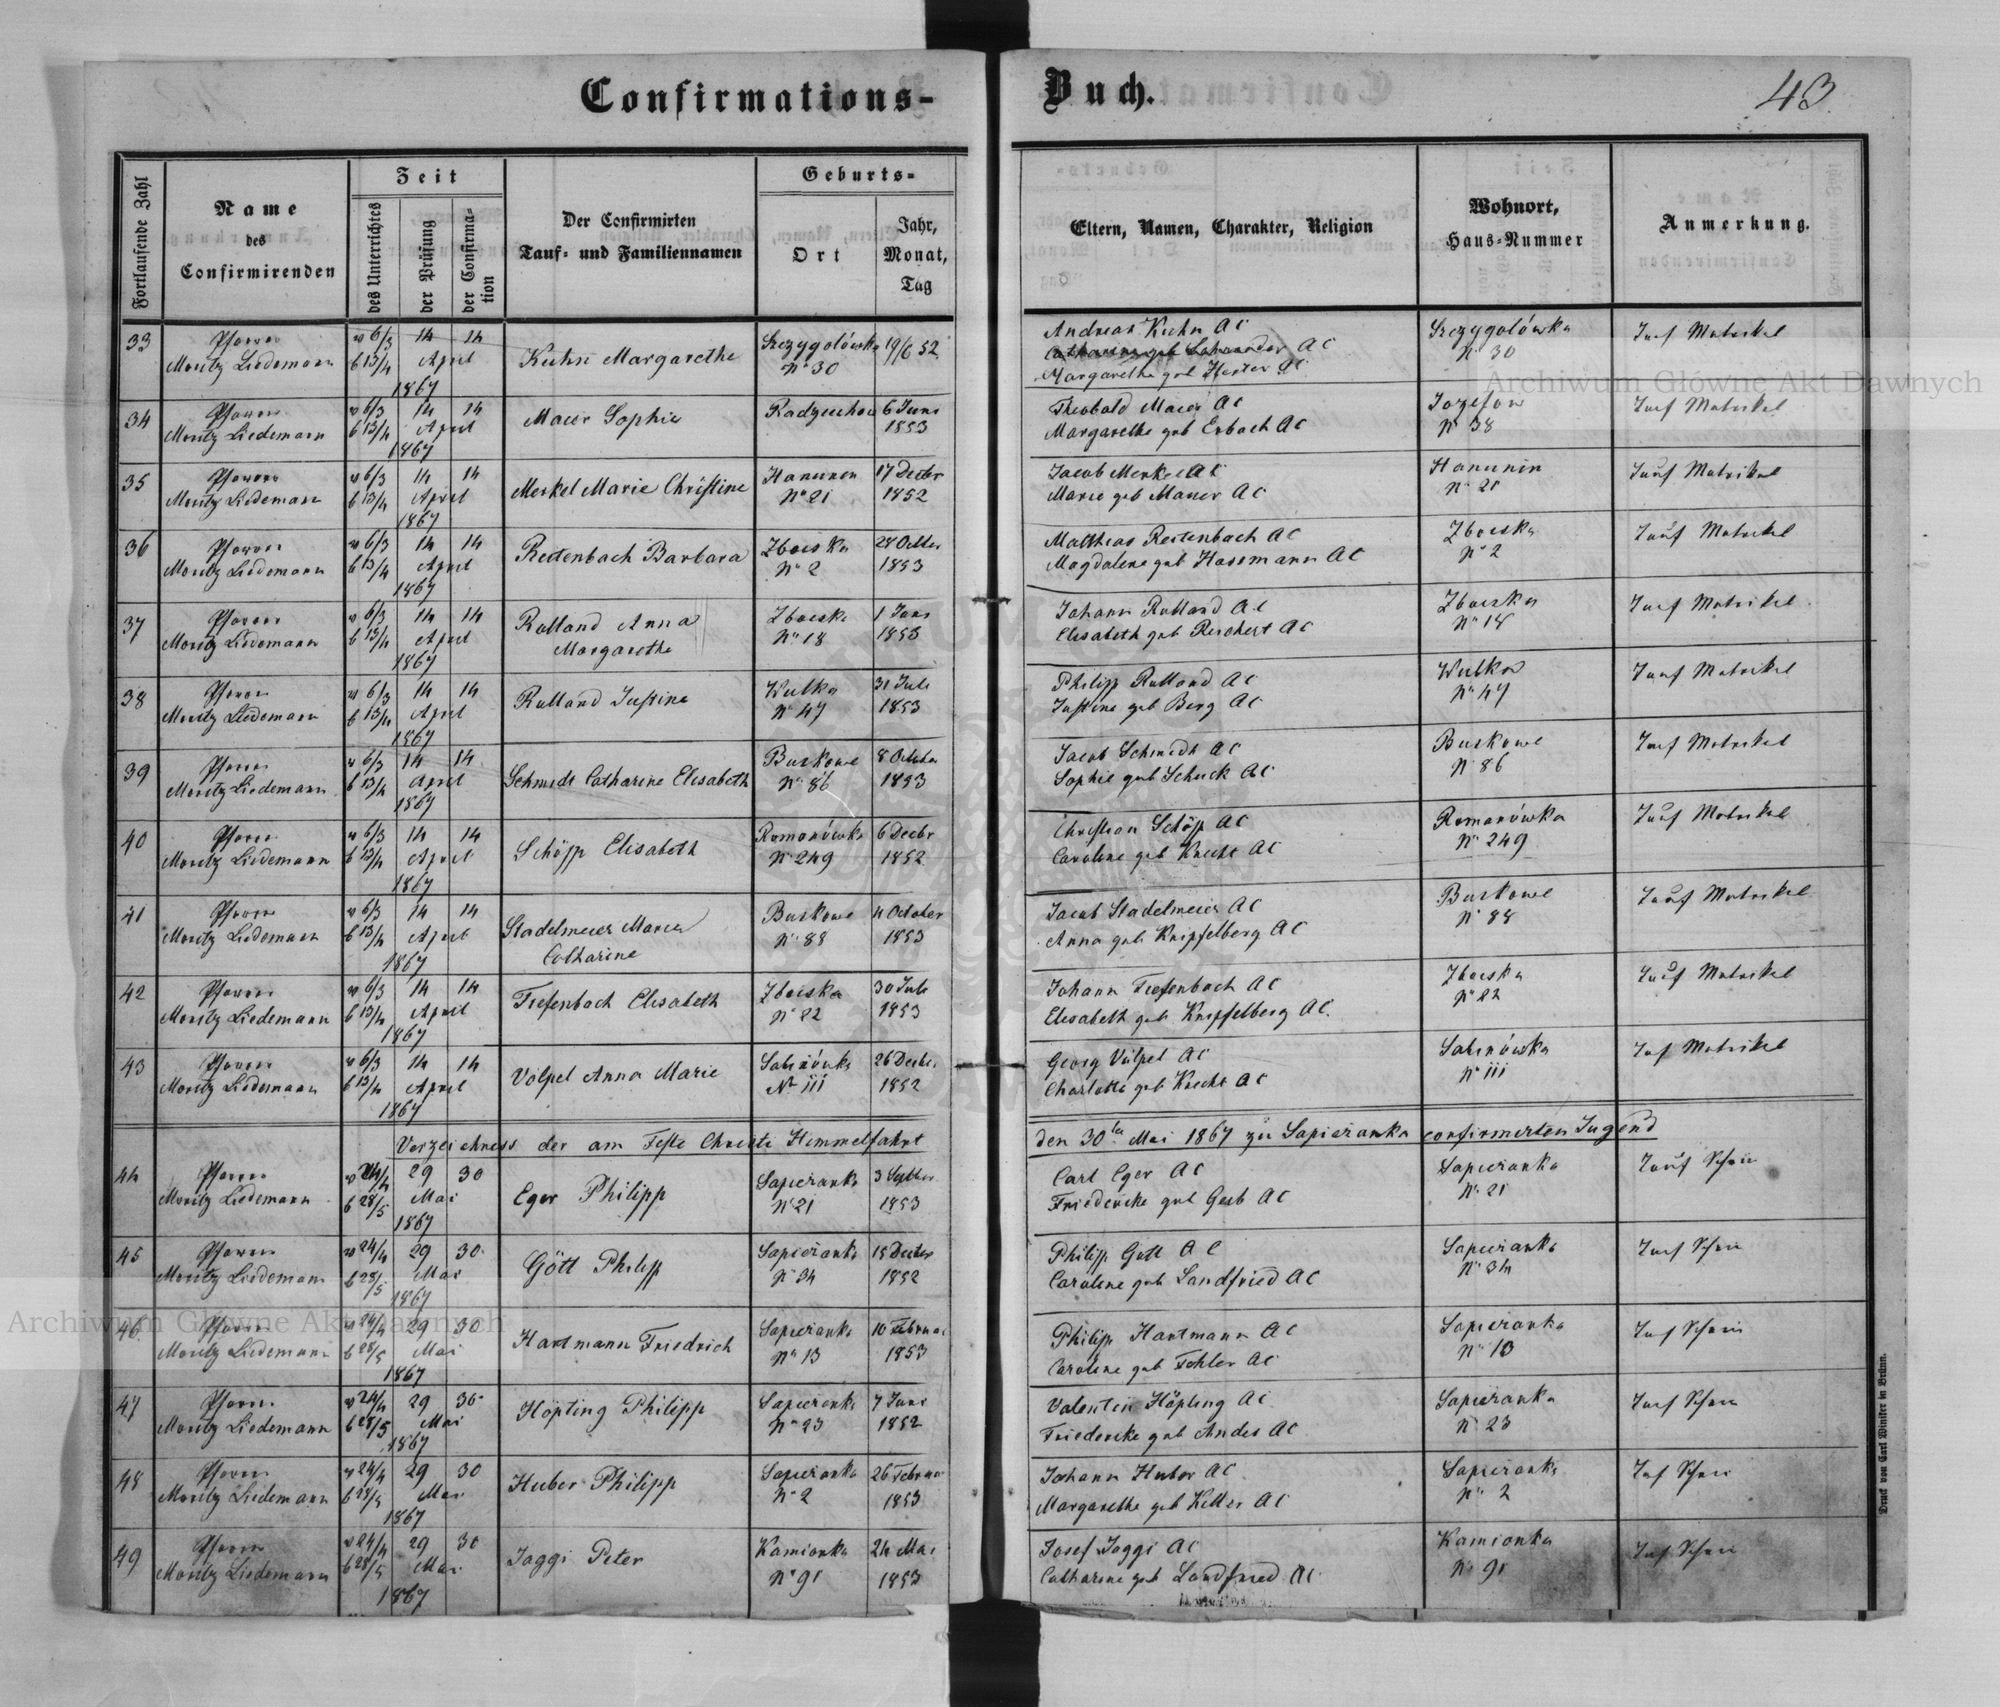 Confirmations-
Buch.
43
Fortlaufende Zahl
Name
des
Confirmirenden
Zeit
des Unterrichtes
der Prüfung
der Confirma-
tion
Der Confirmirten
Tauf- und Familiennamen
Geburts-
Ort
Jahr,
Monat,
Tag
Eltern, Namen, Charakter, Religion
Wohnort,
Haus-Nummer
Anmerkung.
33 Pfarrer v 6/3 14 14 Szczygolówka 19/6 52 Andreas Kuhn AC Szczygolówka
Moritz Liedemann b 13/4 April Kuhn Margarethe No 30 AC No 30 Tauf Matrikel
1867 Margarethe geb Hexter AC
34 Pfarrer v 6/3 14 14 Maier Sophie Radziechow 6 Juni Theobald Maier AC Jozefow Tauf Matrikel
Moritz Liedemann b 13/4 April 1853 Margarethe geb Erbach AC No 38
1867
35 Pfarrer v 6/3 14 14 Hanunin 17 Decbr Jacob Merkel AC Hanunin Tauf Matrikel
Moritz Liedemann b 13/4 April Merkel Marie Christine No 21 1852 Marie geb Mauer AC No 21
1867
36 Pfarrer v 6/3 14 14 Reitenbach Barbara Zboiska Matthias Reitenbach AC Zboiska Tauf Matrikel
Moritz Liedemann b 13/4 April No 2 1853 Magdalene geb Hassmann AC No 2
1867
37 Pfarrer v 6/3 14 14 Rulland Anna Zboiska 1 Johann Rulland AC Zboiska Tauf Matrikel
Moritz Liedemann b 13/4 April Margarethe No 18 1853 Elisabeth geb Reichert AC No 18
1867
38 Pfarrer v 6/3 14 14 Rulland Justine Wulka 31 Juli Philipp Rulland AC Wulka Tauf Matrikel
Moritz Liedemann b 13/4 April No 47 1853 Justine geb Berg AC No 47
1867
39 Pfarrer v 6/3 14 14 Buskowe 8 October Jacob Schmidt AC Buskowe Tauf Matrikel
Moritz Liedemann b 13/4 April Schmidt Catharine Elisabeth No 86 1853 Sophie geb Schuck AC No 86
1867
40 Pfarrer v 6/3 14 14 Romanówka 6 Decbr Christian Schöpp AC Romanówka Tauf Matrikel
Moritz Liedemann b 13/4 April Schöpp Elisabeth No 249 1852 Caroline geb Knecht AC No 249
1867
41 Pfarrer v 6/3 14 14 Stadelmeier Maria Buskowe 4 October Jacob Stadelmeier AC Buskowe Tauf Matrikel
Moritz Liedemann b 13/4 April Catharine No 88 1853 Anna geb Knipfelberg AC No 88
1867
42 Pfarrer v 6/3 14 14 Tiefenbach Elisabeth Zboiska 30 Juli Johann Tiefenbach AC Zboiska Tauf Matrikel
Moritz Liedemann b 13/4 April No 22 1853 Elisabeth geb Knipfelberg AC No 22
1867
43 Pfarrer v 6/3 14 14 Volpel Anna Marie Sabinówka 26 Decbr Georg Völpel AC Sabinówka Tauf Matrikel
Moritz Liedemann b 13/4 April No 111 1852 Charlotte geb Knecht AC No 111
1867
Verzeichniss der am Feste Christi Himmelfahrt den 30ten Mai 1867 zu Sapiezanka confirmirten Jugend
44 Pfarrer v 24/4 29 30 Eger Philipp Sapiezanka 3 Septbr Carl Eger AC Sapiezanka Tauf Schein
Moritz Liedemann b 28/5 Mai No 21 1853 Friedericke geb Gerb AC No 21
1867
45 Pfarrer v 24/4 29 30 Gött Philipp Sapiezanka 15 Decbr Philipp Gött AC Sapiezanka Tauf Schein
Moritz Liedemann b 28/5 Mai No 34 1852 Caroline geb Landfried AC No 34
1867
46 Pfarrer v 24/4 29 30 Hartmann Friedrich Sapiezanka 10 Februar Philipp Hartmann AC Sapiezanka Tauf Schein
Moritz Liedemann b 28/5 Mai No 13 1853 Caroline geb Fehler AC No 13
1867
47 Pfarrer v 24/4 29 30 Höpting Philipp Sapiezanka 7 Juni Valentin Höpting AC Sapiezanka Tauf Schein
Moritz Liedemann b 28/5 Mai No 23 1852 Friedericke geb Andes AC No 23
1867
48 Pfarrer v 24/4 29 30 Huber Philipp Sapiezanka 26 Februar Johann Huber AC Sapiezanka Tauf Schein
Moritz Liedemann b 28/5 Mai No 2 1853 Margarethe geb Keller AC No 2
1867
49 Pfarrer v 24/4 29 30 Jaggi Peter Kamionka 24 Mai Josef Jaggi AC Kamionka Tauf Schein
Moritz Liedemann b 28/5 Mai No 91 1853 Catharine geb Landfried AC No 91
1867
Druck von Carl Winiker in Brünn.
Archiwum Główne Akt Dawnych
Archiwum Główne Akt Dawnych